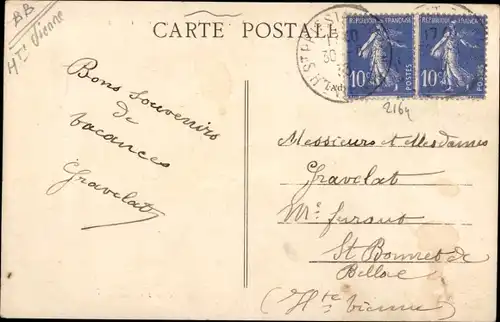 BB
Hte Vienne
CARTE POSTALE
REPUBLIQUE FRANÇAISE REPUBLIQUE FRANÇAISE
10c POSTES 10c POSTES
2164
Bons souvenirs
de
vacances
Gravelat
Messieurs et Mesdames
Gravelat
St Bonnet de
Bellac
(Hte Vienne)